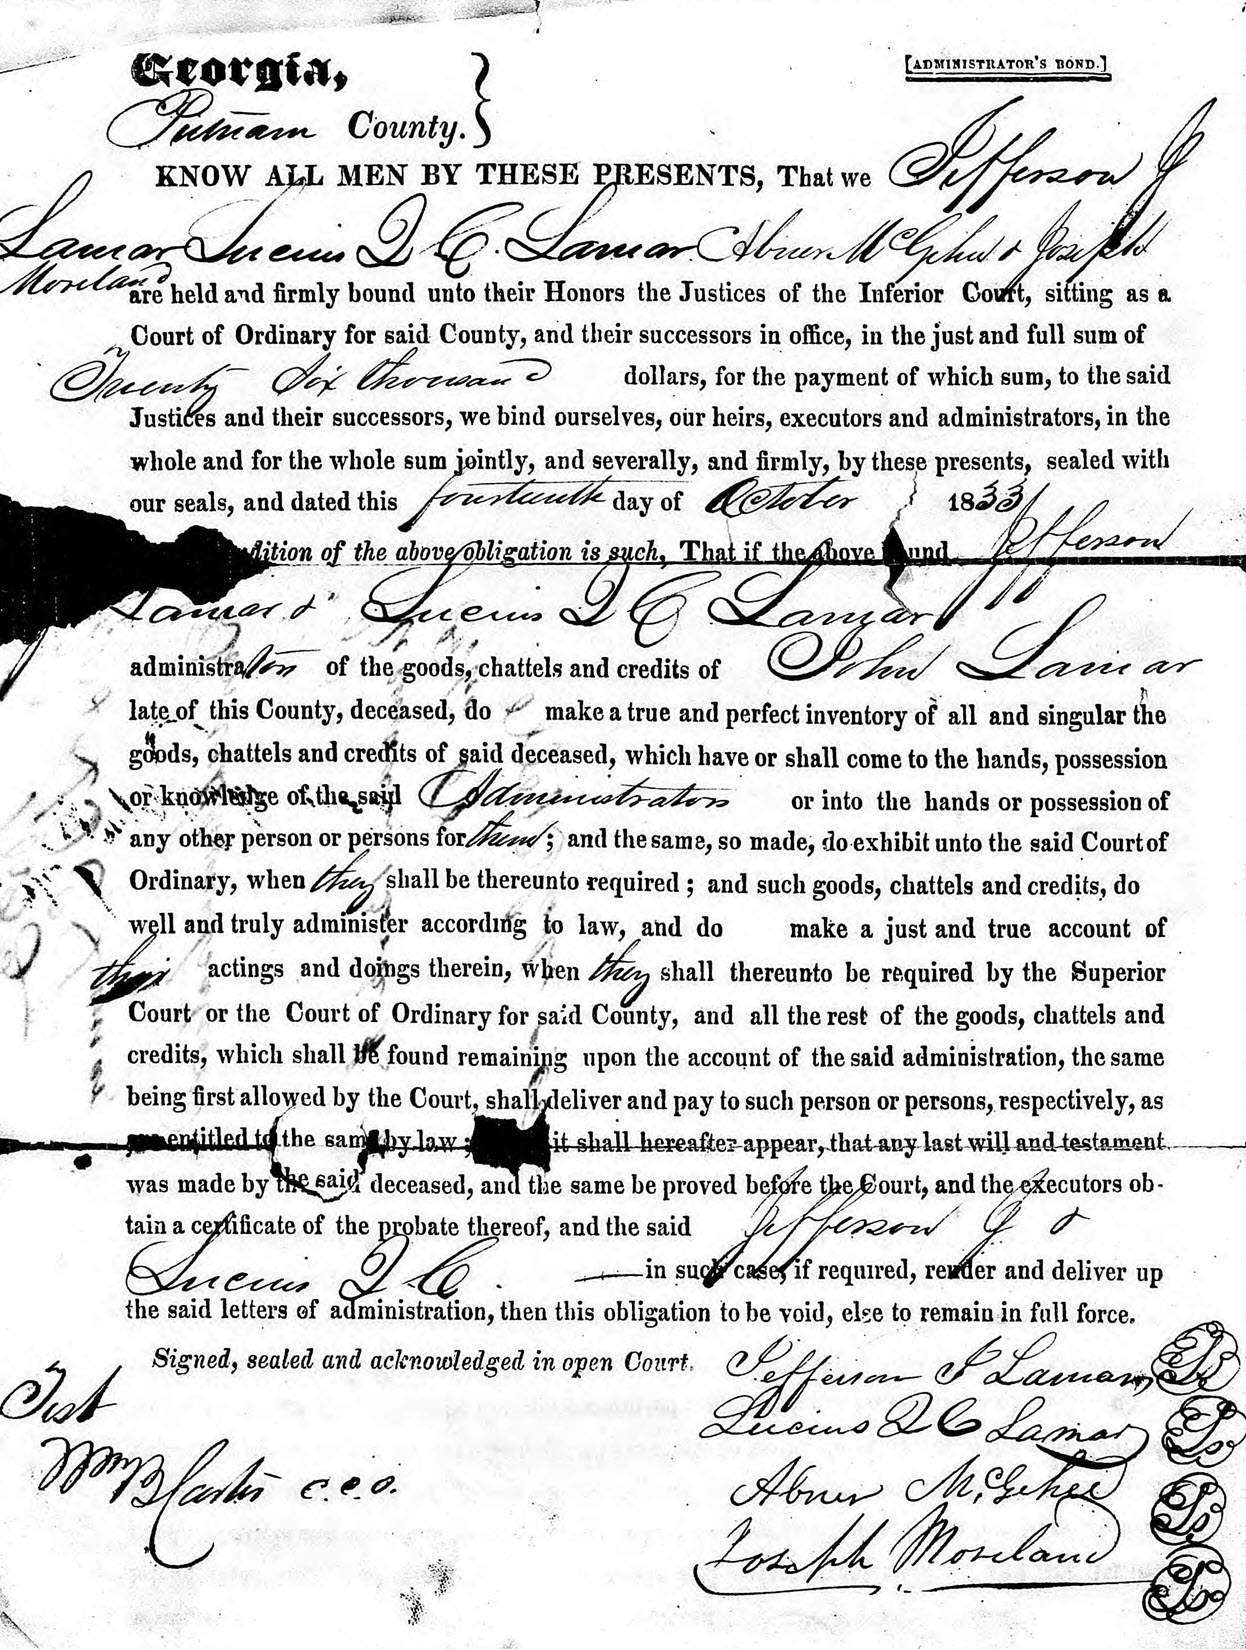 Georgia,
[ADMINISTRATOR'S BOND.]
Putnam County.
KNOW ALL MEN BY THESE PRESENTS, That we Jefferson J
Lamar Lucius Q C. Lamar Abner McGehee & Joseph
Moreland
are held and firmly bound unto their Honors the Justices of the Inferior Court, sitting as a
Court of Ordinary for said County, and their successors in office, in the just and full sum of
Twenty Six thousand dollars, for the payment of which sum, to the said
Justices and their successors, we bind ourselves, our heirs, executors and administrators, in the
whole and for the whole sum jointly, and severally, and firmly, by these presents, sealed with
our seals, and dated this fourteenth day of October 1833
dition of the above obligation is such, That if the above bound Jefferson
Lamar & Lucius Q C Lamar
administrators of the goods, chattels and credits of John Lamar
late of this County, deceased, do make a true and perfect inventory of all and singular the
goods, chattels and credits of said deceased, which have or shall come to the hands, possession
or knowledge of the said Administrators or into the hands or possession of
any other person or persons for them; and the same, so made, do exhibit unto the said Court of
Ordinary, when they shall be thereunto required; and such goods, chattels and credits, do
well and truly administer according to law, and do make a just and true account of
their actings and doings therein, when they shall thereunto be required by the Superior
Court or the Court of Ordinary for said County, and all the rest of the goods, chattels and
credits, which shall be found remaining upon the account of the said administration, the same
being first allowed by the Court, shall deliver and pay to such person or persons, respectively, as
entitled to the same by law; it shall hereafter appear, that any last will and testament
was made by the said deceased, and the same be proved before the Court, and the executors ob-
tain a certificate of the probate thereof, and the said Jefferson J &
Lucius Q C. in such case, if required, render and deliver up
the said letters of administration, then this obligation to be void, else to remain in full force.
Signed, sealed and acknowledged in open Court.
Jefferson J Lamar
Lucius Q C Lamar
Test
Wm B Carter c.c.o.
Abner McGehee
Joseph Moreland